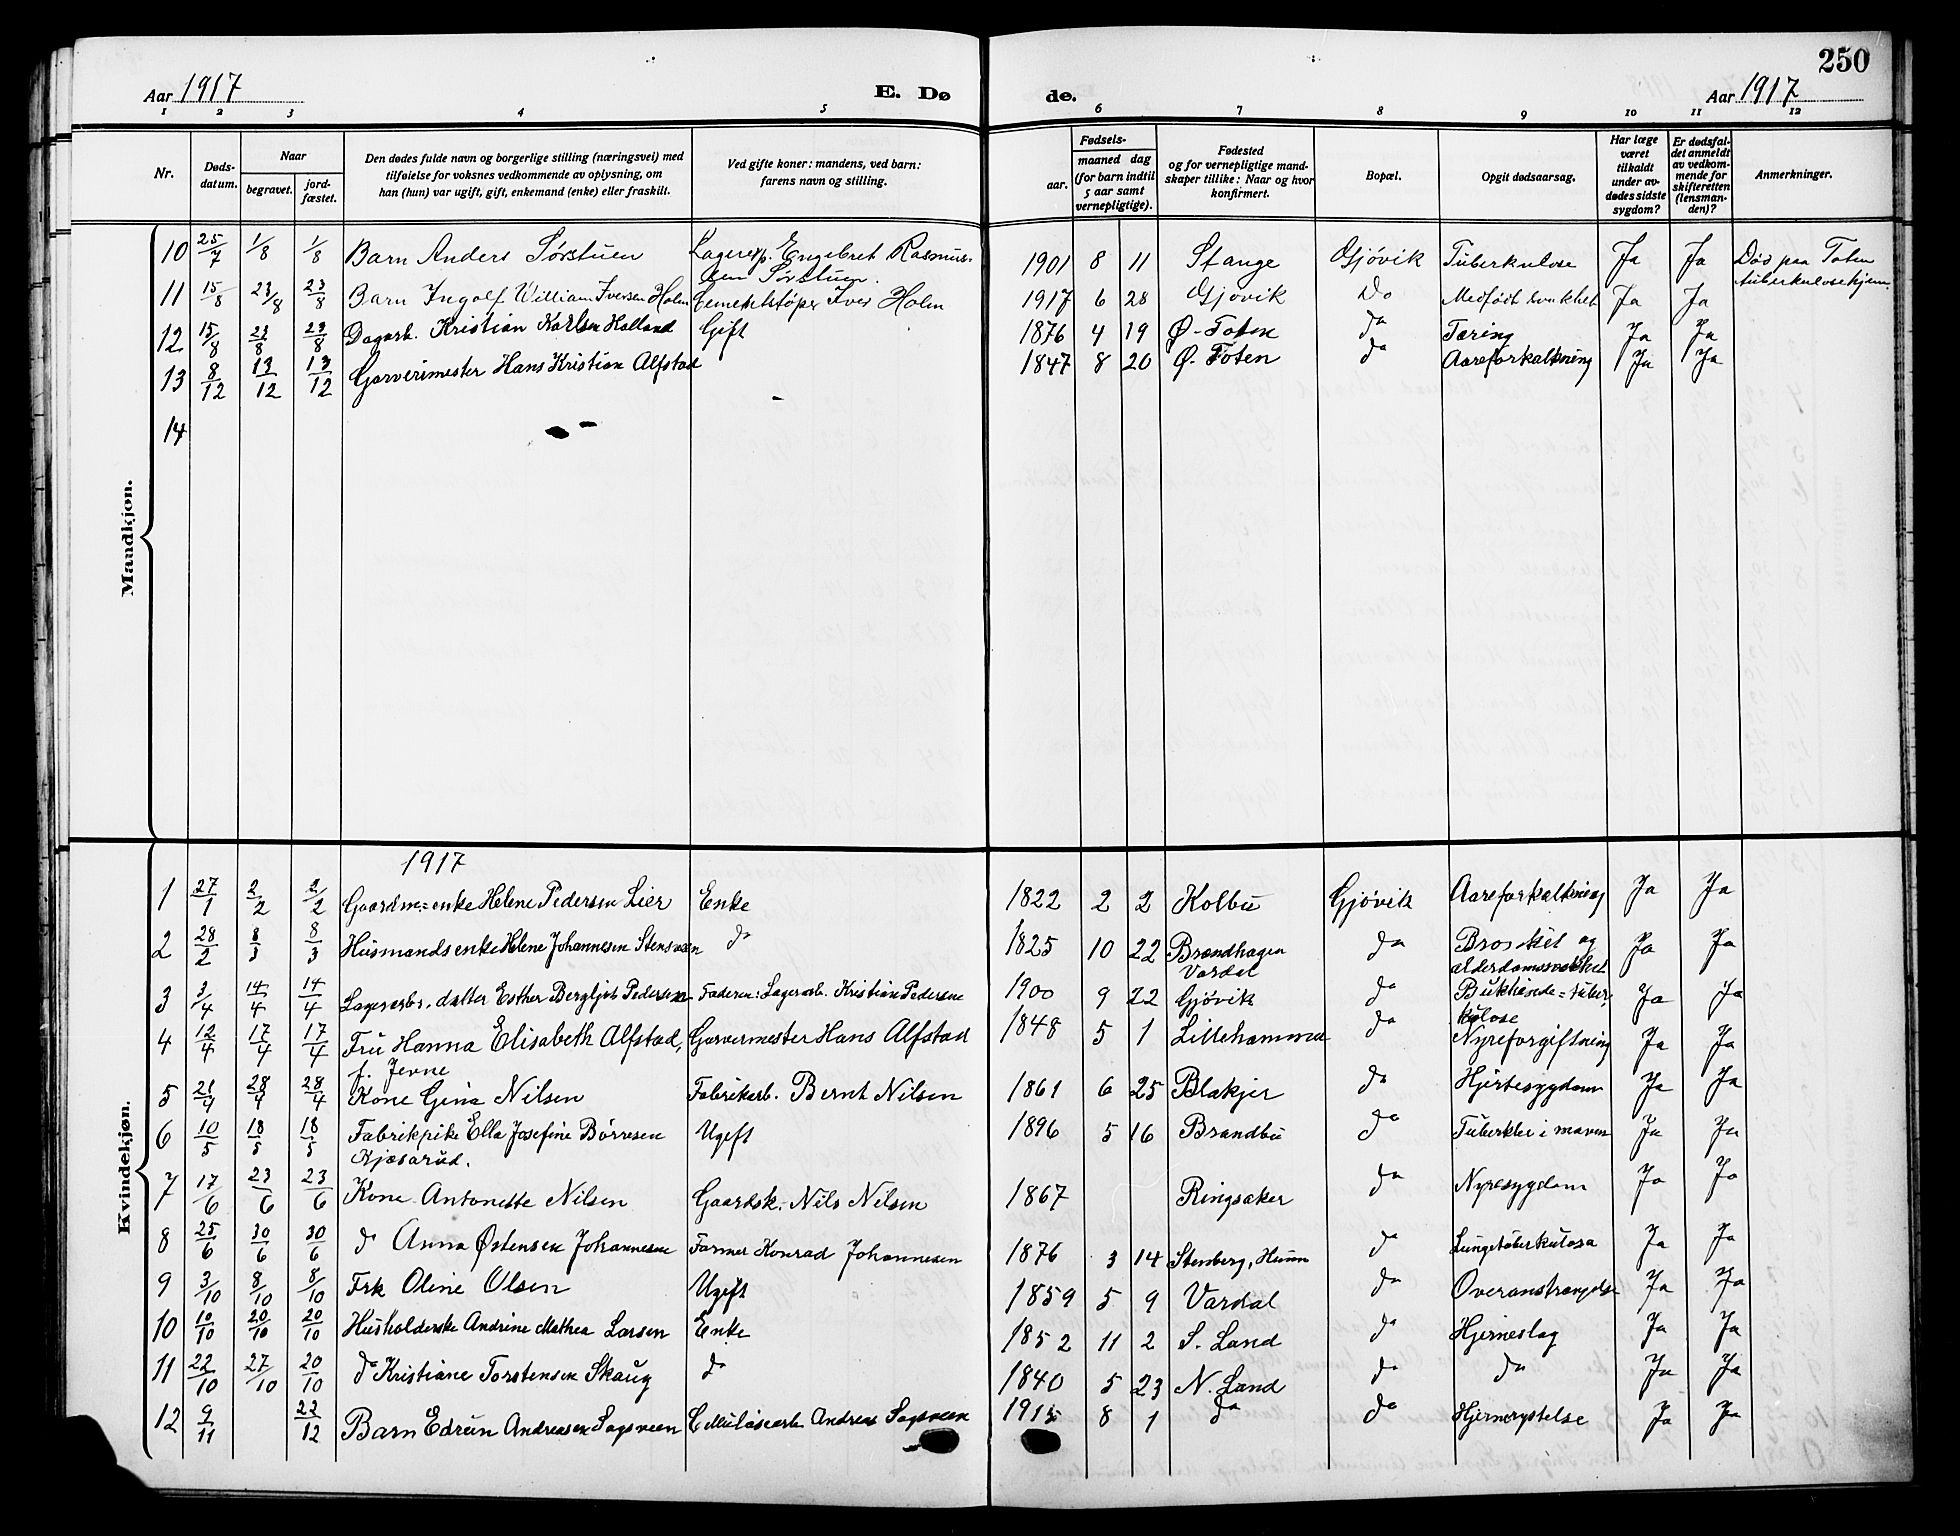 250
Aar 1917 E. Dø de. Aar 1917
1 2 3 4 5 6 7 8 9 10 11 12
Nr. Døds-datum. Naar begravet. jord-fæstet. Den dødes fulde navn og borgerlige stilling (næringsvei) med tilføielse for voksnes vedkommende av oplysning, om han (hun) var ugift, gift, enkemand (enke) eller fraskilt. Ved gifte koner: mandens, ved barn: farens navn og stilling. Fødsels- aar. maaned dag (for barn indtil 5 aar samt vernepligtige). Fødested og for vernepligtige mand-skaper tillike: Naar og hvor konfirmert. Bopæl. Opgit dødsaarsag. Har læge været tilkaldt under av-dødes sidste sygdom? Er dødsfal-det anmeldt av vedkom-mende for skifteretten (lensman-den)? Anmerkninger.
Mandkjøn.
10 25/7 1/8 1/8 Barn Anders Sørstuen Lagerexp. Engebret Rasmus- 1901 8 11 Stange Gjövik Tuberkulose Ja Ja Död paa Toten
sen Sørstuen. tuberkulosehjem.
11 15/8 23/8 23/8 Barn Ingolf William Iversen Holm Cementstøper Iver Holm 1917 6 28 Gjøvik Do Medfödt svakhet Ja Ja
12 15/8 23/8 23/8 Dagarb. Kristian Karlsen Holland Gift 1876 4 19 Ø-Toten do Tæring Ja Ja
13 8/12 13/12 13/12 Garverimester Hans Kristian Alfstad 1847 8 20 Ø. Toten do Aareforkalkning Ja Ja
14
Kvindekjøn.
1917
1 27/1 2/2 2/2 Gaardm.=enke Helene Pedersen Lier Enke 1822 2 2 Kolbu Gjövik Aareforkalkning Ja Ja
2 28/2 8/3 8/3 Husmandsenke Helene Johannesen Stensveen do 1825 10 22 Brændhagen do og Ja Ja
Vardal alderdomssvakhet
3 3/4 14/4 14/4 Lagerarb. datter Esther Bergljot Pedersen Faderen: Lagerarb. Kristian Pedersen 1900 9 22 Gjövik do Bukhinde=tuber- Ja Ja
kulose
4 12/4 17/4 17/4 Fru Hanna Elisabeth Alfstad, Garvermester Hans Alfstad 1848 5 1 Lillehammer do Nyreforgiftning Ja Ja
f. Jevne
5 21/4 28/4 28/4 Kone Gina Nilsen Fabrikarb. Bernt Nilsen 1861 6 25 Blakjer do Hjertesygdom Ja Ja
6 10/5 18/5 18/5 Fabrikpike Ella Josefine Börresen Ugift 1896 5 16 Brandbu do Tuberkler i maven Ja Ja
Kjøsarud.
7 17/6 23/6 23/6 Kone Antonette Nilsen Gaardsk. Nils Nilsen 1867 Ringsaker do Nyresygdom Ja Ja
8 25/6 30/6 30/6 do Anna Østensen Johannesen Farmer Konrad Johannesen 1876 3 14 Stenberg, Hunn do Lungetuberkulosa Ja Ja
9 3/10 8/10 8/10 Frk Oline Olsen Ugift 1859 5 9 Vardal do Overanstrængelse Ja Ja
10 10/10 20/10 20/10 Husholderske Andrine Mathea Larsen Enke 1852 11 2 S. Land do Hjerneslag Ja Ja
11 22/10 27/10 20/10 do Kristiane Torstensen Skaug do 1840 5 23 N. Land do do Ja Ja
12 9/11 22/12 Barn Edrun Andreasen Sagsveen Cellulosearb. Andreas Sagsveen 1915 8 1 do do Hjernerystelse Ja Ja